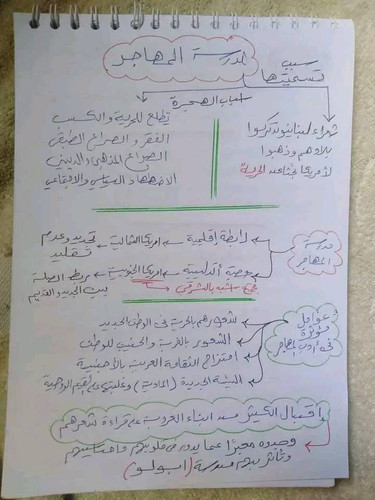 مدرسة المهاجر
سبب تسميتها
أسباب الهجرة
شعراء لبنانيون تركوا
بلادهم وذهبوا
لأمريكا بحثا عن الحرية
تطلع للحرية والكسب
الفقر والصراع الطبقي
الصراع المذهبي والديني
الاضطهاد السياسي والاجتماعي
مدرسة المهاجر
رابطة إقليمية ← أمريكا الشمالية ← تجديد وعدم تقليد
عصبة أندلسية ← أمريكا الجنوبية ← ربط الصلة بين الجديد والقديم
بالشرق
عوامل مؤثرة في أدب المهاجر
شعورهم بالحرية في الوطن الجديد
الشعور بالغربة والحنين للوطن
امتزاج الثقافة العربية بالأجنبية
البيئة الجديدة (المادية) وغلبتها على القيم الروحية
إقبال الكثير من أبناء العروبة على قراءة شعرهم
وجدوه معبرا عما يدور في قلوبهم وأحاسيسهم
وتأثر بهم مدرسة (أبولو)